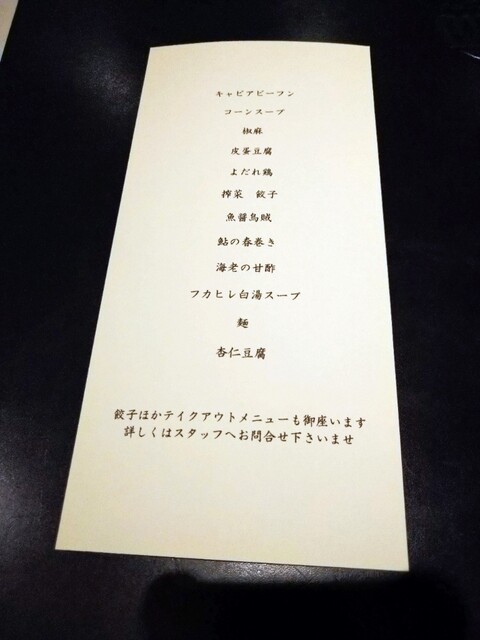 キャビアビーフン
コーンスープ
椒麻
皮蛋豆腐
よだれ鶏
搾菜　餃子
魚醤烏賊
鮎の春巻き
海老の甘酢
フカヒレ白湯スープ
麺
杏仁豆腐
餃子ほかテイクアウトメニューも御座います
詳しくはスタッフへお問合せ下さいませ